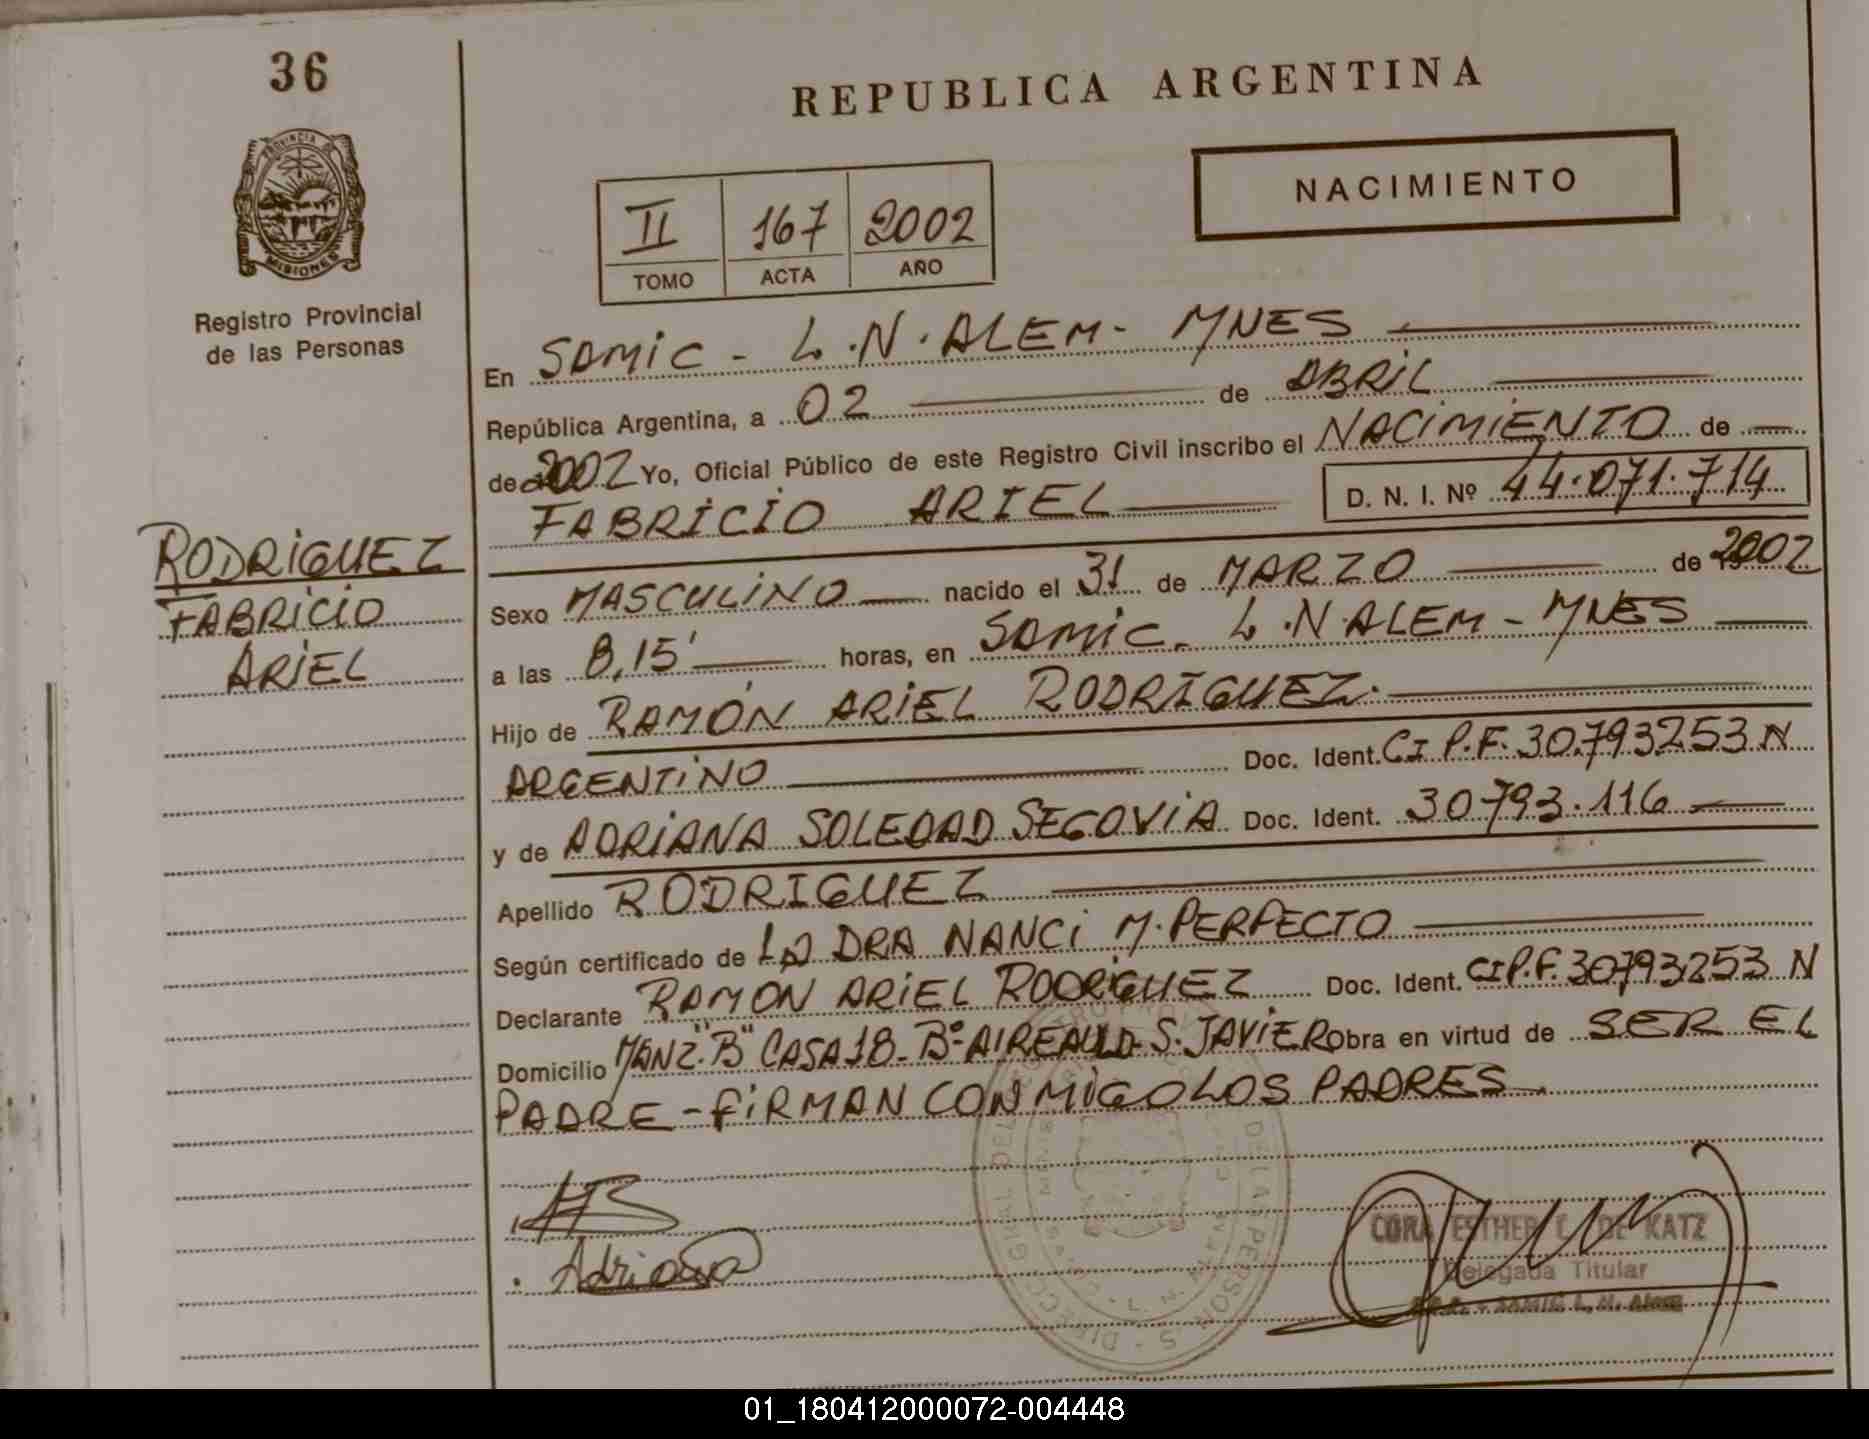 36
PROVINCIA DE
MISIONES
Registro Provincial
de las Personas
RODRIGUEZ
FABRICIO
ARIEL
REPUBLICA ARGENTINA
NACIMIENTO
II 167 2002
TOMO ACTA AÑO
En SAMIC - L.N. ALEM - MNES
República Argentina, a 02 de ABRIL
de 2002 Yo, Oficial Público de este Registro Civil inscribo el NACIMIENTO de
FABRICIO ARIEL D. N. I. Nº 44.071.714
Sexo MASCULINO nacido el 31 de MARZO de 2002
a las 8,15' horas, en SAMIC - L.N. ALEM - MNES
Hijo de RAMÓN ARIEL RODRIGUEZ.
ARGENTINO Doc. Ident. CI P.F. 30.793.253 N
y de ADRIANA SOLEDAD SEGOVIA Doc. Ident. 30.793.116
Apellido RODRIGUEZ
Según certificado de LA DRA NANCI M. PERFECTO
Declarante RAMON ARIEL RODRIGUEZ Doc. Ident. CI P.F. 30793253 N
Domicilio MANZ. "B" CASA 18 - Bº S. JAVIER obra en virtud de SER EL
PADRE - FIRMAN CONMIGO LOS PADRES
Adriana
CORA ESTHER C. DE KATZ
Delegada Titular
SAMIC L. N. ALEM
01_180412000072-004448